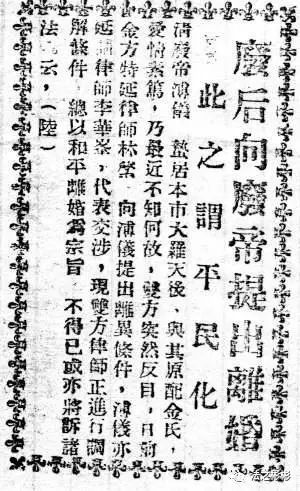 廢后向廢帝提出離婚
此之謂平民化
清廢帝溥儀 蟄居本市大羅天後、與其原配金氏，
愛情素篤，乃最近不知何故，雙方突然反目，日前
金方特延律師林棨 向溥儀提出離異條件，溥儀亦
延律師李華峯，代表交涉，現雙方律師正進行調
解條件、總以和平離婚爲宗旨 不得已或亦將訴諸
法 云，（陸）